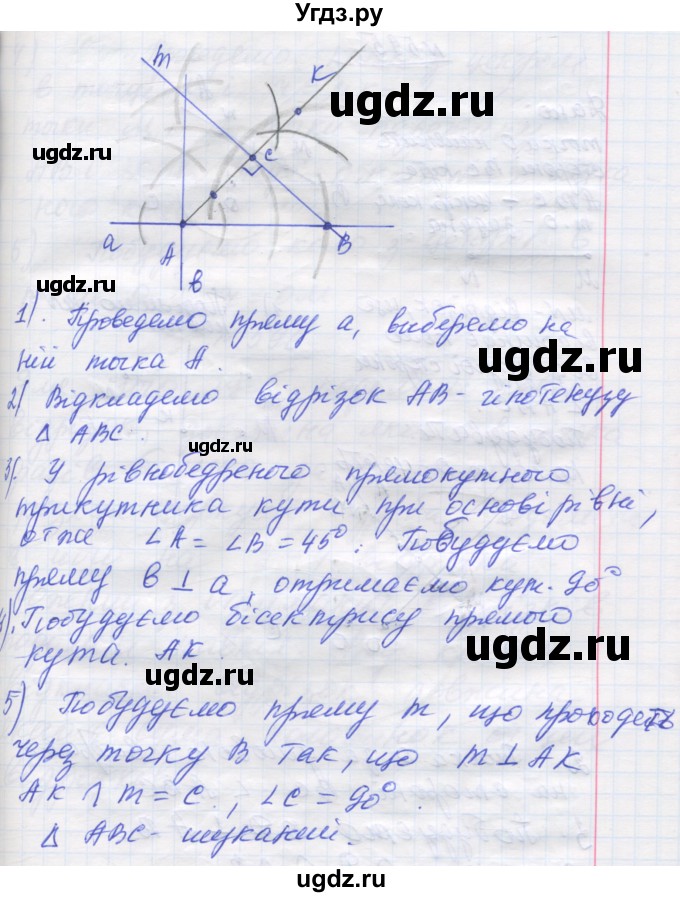 Угдз.ру
m
K
ugdz.ru
ugdz.ru
C
a
A
B
ugdz.ru
в
ugdz.ru
1). Проведемо пряму а, виберемо на
ній точка А.
ugdz.ru
2) Відкладемо відрізок АВ - гіпотенузу
Δ АВС.
ugdz.ru
3). У рівнобедреного прямокутного
трикутника кути при основі рівні,
отже ∠A = ∠B = 45°. Побудуємо
ugdz.ru
пряму в ⊥ а, отримаємо кут. 90°
4). Побудуємо бісектрису прямого
кута. АК.
ugdz.ru
ugdz.ru
5) Побудуємо пряму m, що проходеть
через точку В так, що m ⊥ AK
AK ∩ m = C., ∠C = 90°.
ugdz.ru
Δ АВС - шуканий.
ugdz.ru